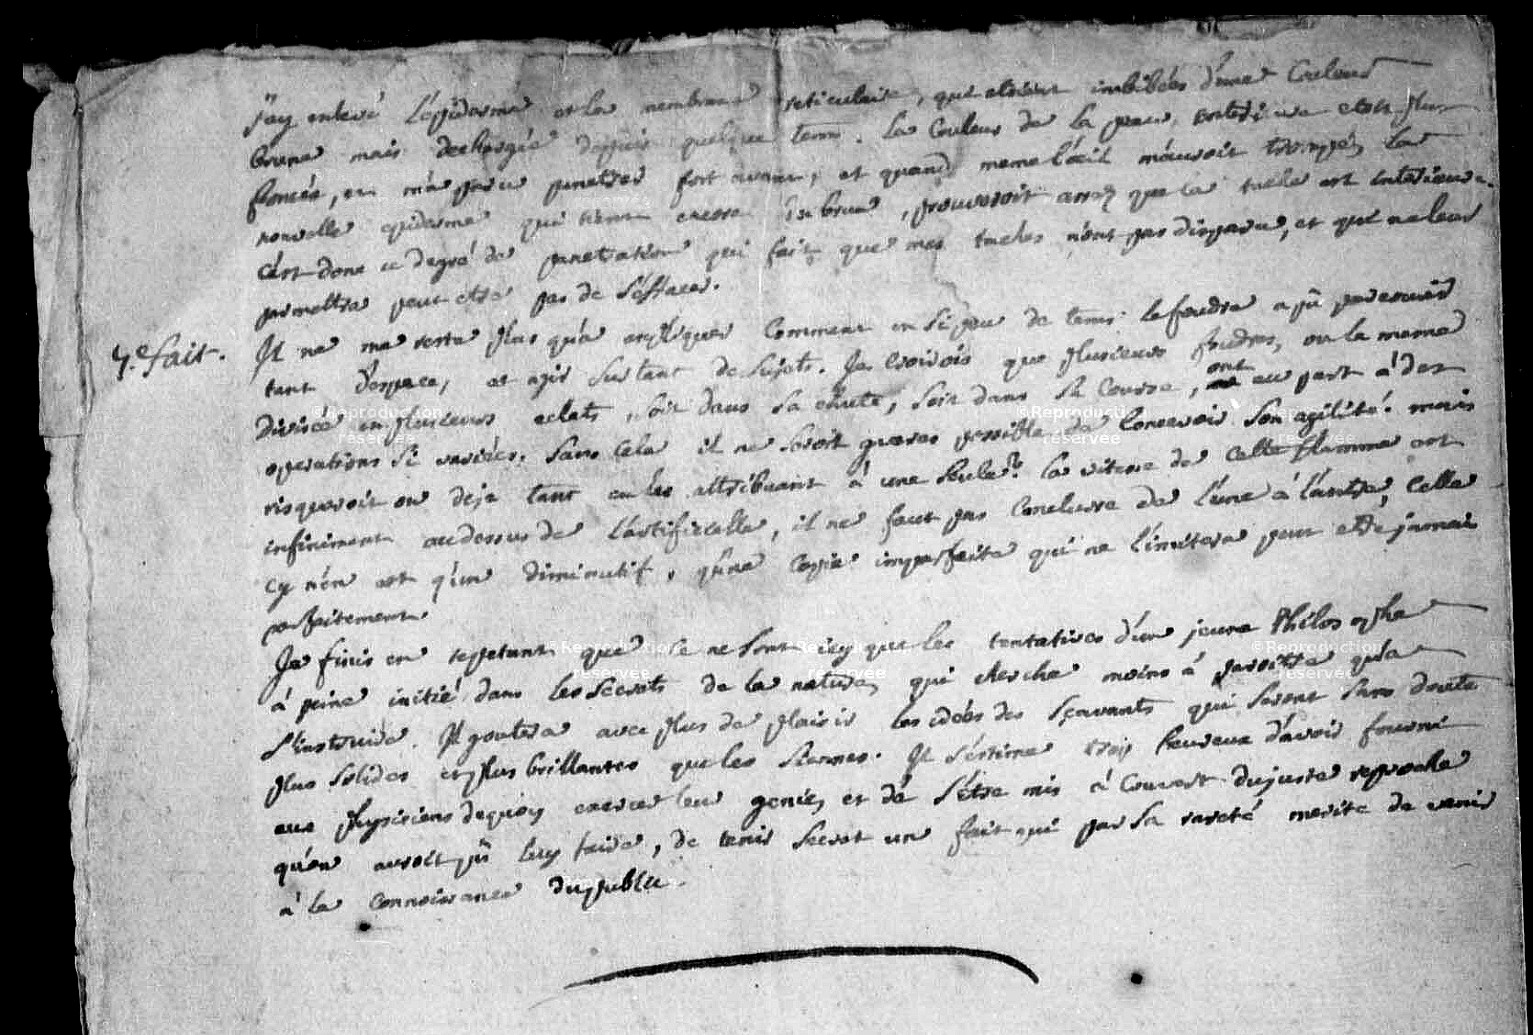 J'ay enlevé l'épiderme et la membrane reticulaire, qui etoient imbibées d'une Couleur
brune mais dechargée depuis quelque tems. La Couleur de la peau interieure etoit plus
foncée, et m'a paru penetrer fort avant, et quand meme l'œil m'auroit trompé, la
nouvelle epiderme qui vient encore brune, prouveroit assez que la tache est interieure.
C'est donc ce degré de penetration qui fait que mes taches n'ont pas disparu, et qui ne leur
permettra peut etre pas de s'éffacer.
4.e fait. Il ne me reste plus qu'a expliquer Comment en si peu de tems la foudre a pû parcourir
tant d'espace, et agir sur tant de sujets. Je croirois que plusieurs foudres, ou la meme
divisée en plusieurs eclats, soit dans sa chûte, soit dans sa Course, ont eu part à des
operations si variées. Sans Cela il ne seroit gueres possible de Concevoir son agilité. mais
risqueroit on deja tant en les attribuant à une seule? la vitesse de Cette flamme est
infiniment audessus de l'artificielle, il ne faut pas Conclure de l'une à l'autre, Celle
cy n'en est qu'un diminutif, qu'une copie imparfaite qui ne l'imitera peut etre jamais
parfaitement.
Je finis en repetant que ce ne sont icy que les tentatives d'un jeune Philosophe
à peine initié dans les secrets de la nature, qui cherche moins à paroitre qu'a
s'instruire. Il goutera avec plus de plaisir les idées des sçavants qui seront sans doute
plus solides et plus brillantes que les siennes. Il s'éstime trop heureux d'avoir fourni
aux physiciens dequoy exercer leur genie, et de s'étre mis à Couvert du juste reproche
qu'on auroit pû luy faire, de tenir secret un fait qui par sa rareté merite de venir
à la Connoissance du public.
©Reproduction réservée
©Reproduction réservée
©Reproduction réservée
©Reproduction réservée
©Reproduction réservée
©Reproduction réservée